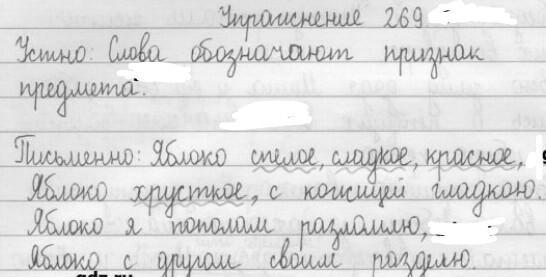 Упражнение 269
Устно: Слова обозначают признак
предмета.
Письменно: Яблоко спелое, сладкое, красное,
Яблоко хрусткое, с кожицей гладкою.
Яблоко я пополам разломлю,
Яблоко с другом своим разделю
gdz.ru